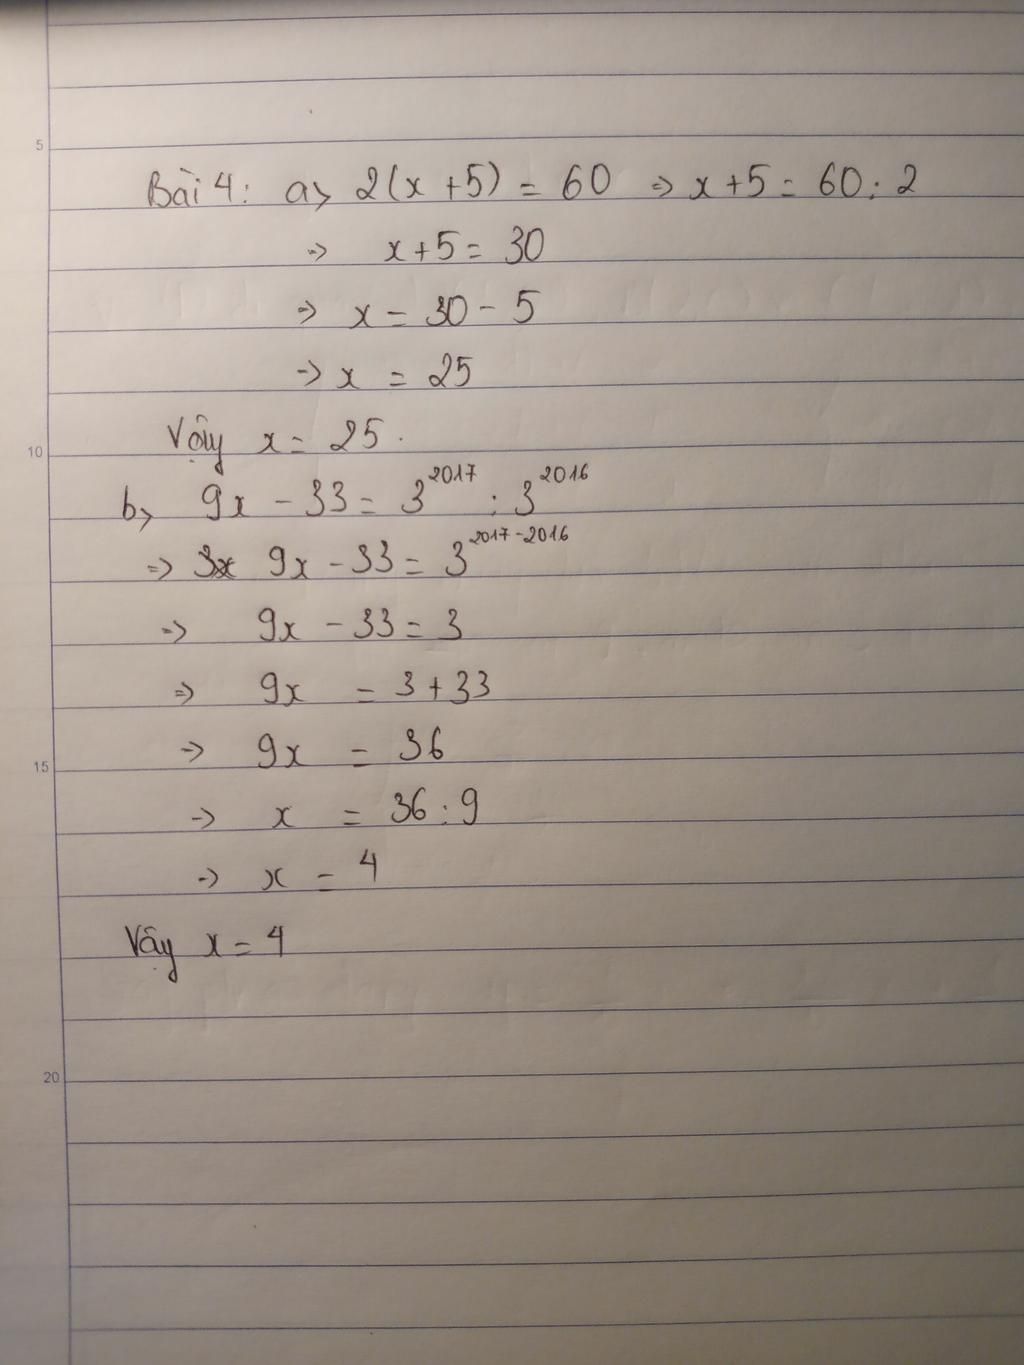 5
Bài 4: a> 2(x+5) = 60 => x+5 = 60 : 2
=> x+5 = 30
=> x = 30 - 5
=> x = 25
10
Vậy x = 25.
b> 9x - 33 = 3^2017 : 3^2016
=> 3x 9x - 33 = 3^2017-2016
=> 9x - 33 = 3
=> 9x = 3 + 33
15
=> 9x = 36
=> x = 36 : 9
=> x = 4
Vậy x = 4
20